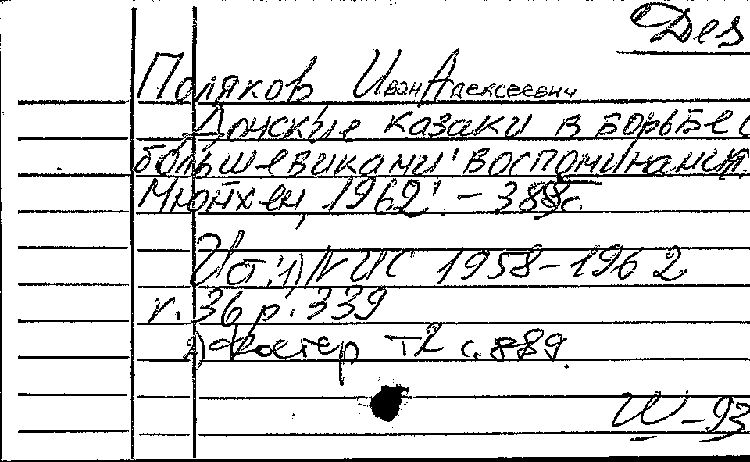 Дез
Поляков Иван Алексеевич
Донские казаки в борьбе с
большевиками: воспоминания.
Мюнхен, 1962. – 388с.
Ист.:1) NUC 1958–1962
v. 36 p. 339
2) Фостер Т2 с. 889.
Ш–93